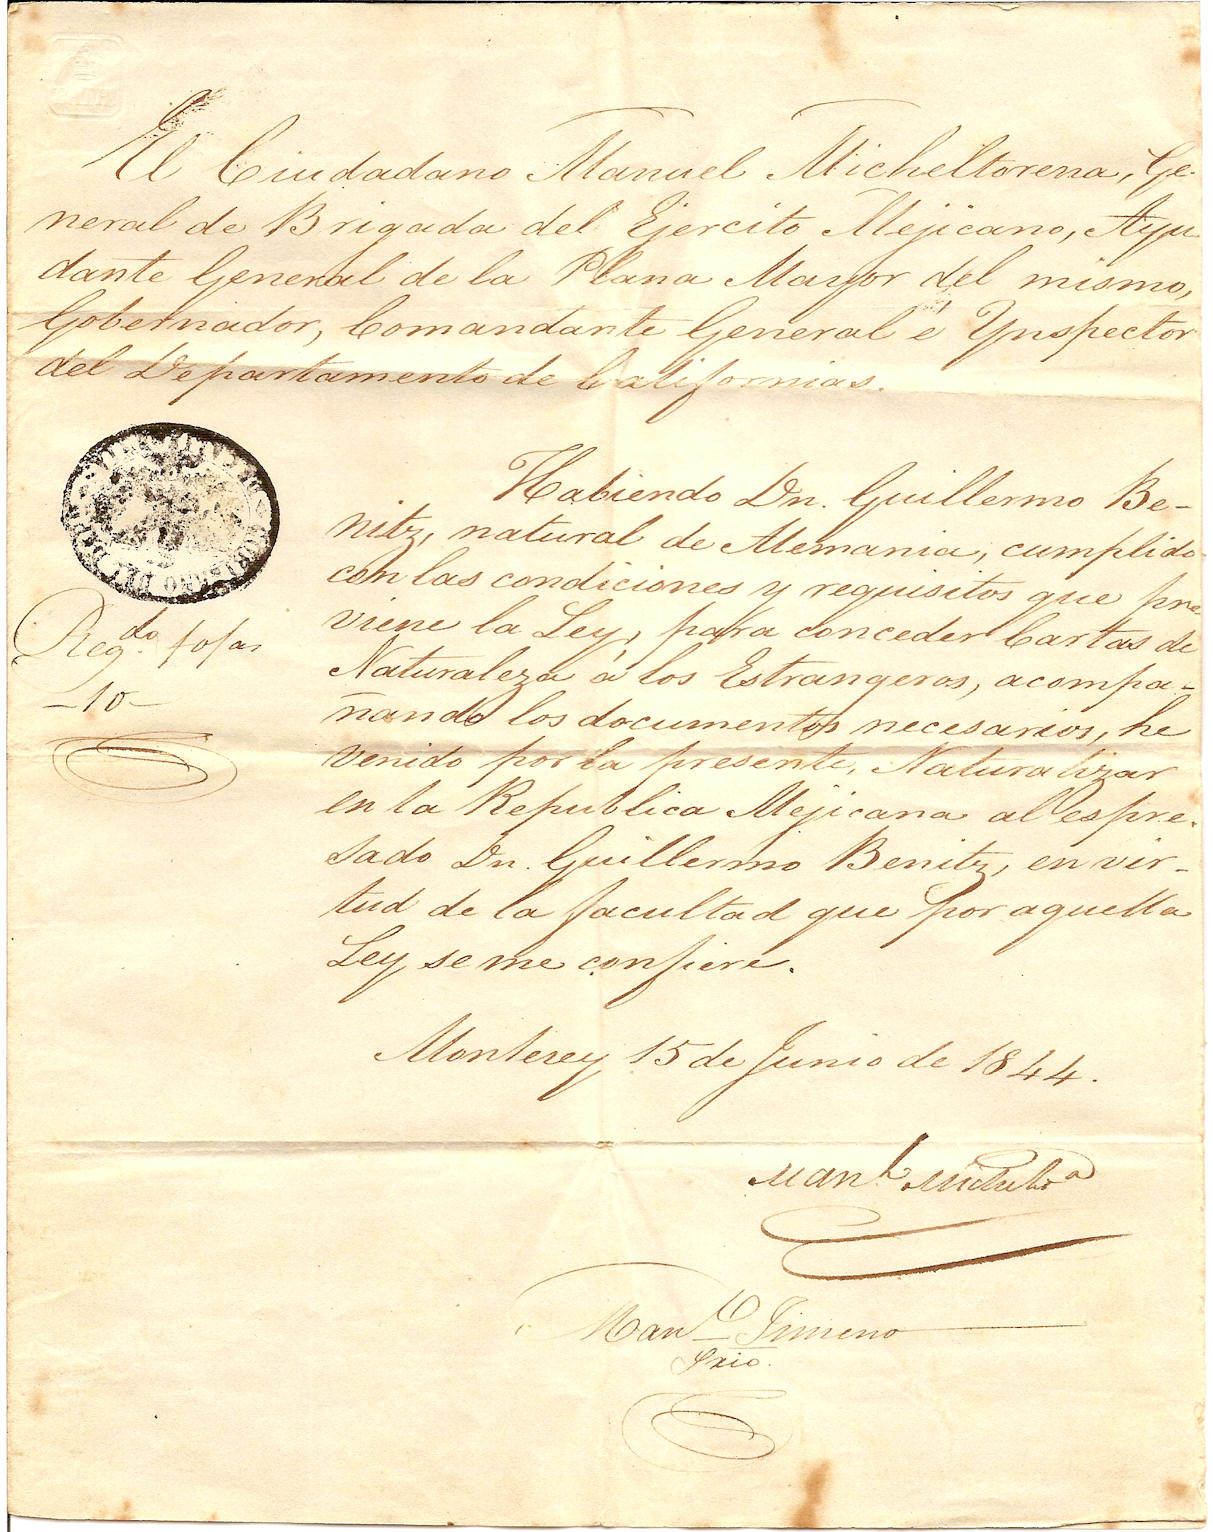 El Ciudadano Manuel Micheltorena, Ge-
neral de Brigada del Ejercito Mejicano, Ayu
dante General de la Plana Mayor del mismo,
Gobernador, Comandante General é Ynspector
del Departamento de Californias.
Habiendo Dn. Guillermo Be-
nitz, natural de Alemania, cumplido
con las condiciones y requisitos que pre
viene la Ley, para conceder Cartas de
Naturaleza á los Estrangeros, acompa-
ñando los documentos necesarios, he
venido por la presente, Naturalizar
en la Republica Mejicana al espre-
sado Dn. Guillermo Benitz, en vir-
tud de la facultad que por aquella
Ley se me confiere.
Monterey 15 de Junio de 1844.
Regdo. á fojas
-10-
Manl. Michelta
Manl. Jimeno
Srio.